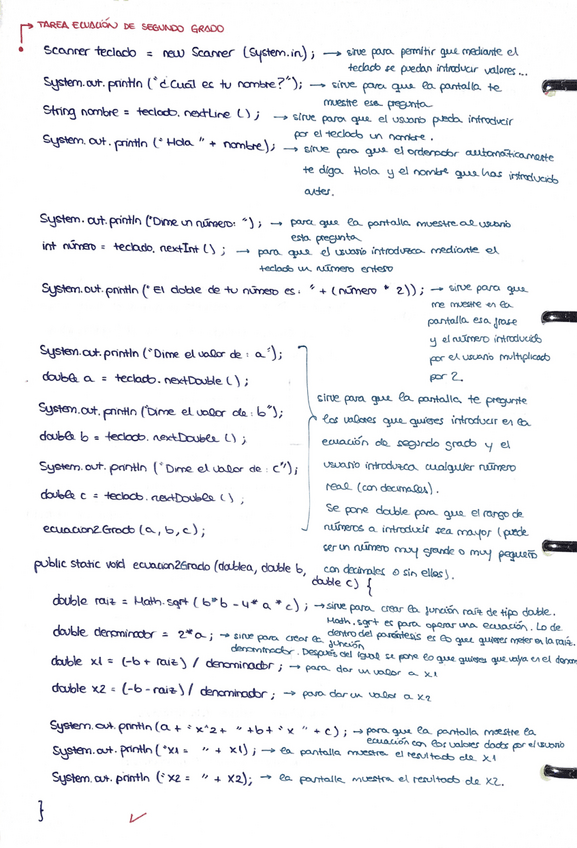 TAREA ECUACIÓN DE SEGUNDO GRADO
Scanner teclado = new Scanner (System.in); → sirve para permitir que mediante el
teclado se puedan introducir valores...
System.out.println ("¿Cuál es tu nombre?"); → sirve para que la pantalla te
muestre esa pregunta
String nombre = teclado.nextLine (); → sirve para que el usuario pueda introducir
por el teclado un nombre.
System.out.println ("Hola " + nombre); → sirve para que el ordenador automáticamente
te diga Hola y el nombre que has introducido
antes.
System.out.println ("Dime un número: "); → para que la pantalla muestre al usuario
esta pregunta
int número = teclado.nextInt (); → para que el usuario introduzca mediante el
teclado un número entero
System.out.println ("El doble de tu número es: " + (número * 2)); → sirve para que
me muestre en la
pantalla esa frase
y el número introducido
por el usuario multiplicado
por 2.
System.out.println ("Dime el valor de: a");
double a = teclado.nextDouble ();
System.out.println ("Dime el valor de: b");
double b = teclado.nextDouble ();
System.out.println ("Dime el valor de: c");
double c = teclado.nextDouble ();
ecuacion2Grado (a, b, c);
sirve para que la pantalla te pregunte
los valores que quieres introducir en la
ecuación de segundo grado y el
usuario introduzca cualquier número
real (con decimales).
Se pone double para que el rango de
números a introducir sea mayor (puede
ser un número muy grande o muy pequeño
con decimales o sin ellos).
public static void ecuacion2Grado (double a, double b,
double c) {
double raiz = Math.sqrt (b*b - 4* a * c); → sirve para crear la función raíz de tipo double.
Math.sqrt es para operar una ecuación. Lo de
dentro del paréntesis es lo que quieres meter en la raíz.
double denominador = 2*a; → sirve para crear la función
denominador. Después del igual se pone lo que quieres que vaya en el denom
double x1 = (-b + raiz) / denominador; → para dar un valor a x1
double x2 = (-b - raiz) / denominador; → para dar un valor a x2
System.out.println (a + "x^2 + " + b + "x " + c); → para que la pantalla muestre la
ecuación con los valores dados por el usuario
System.out.println ("x1 = " + x1); → la pantalla muestra el resultado de x1
System.out.println ("x2 = " + x2); → la pantalla muestra el resultado de x2.
}